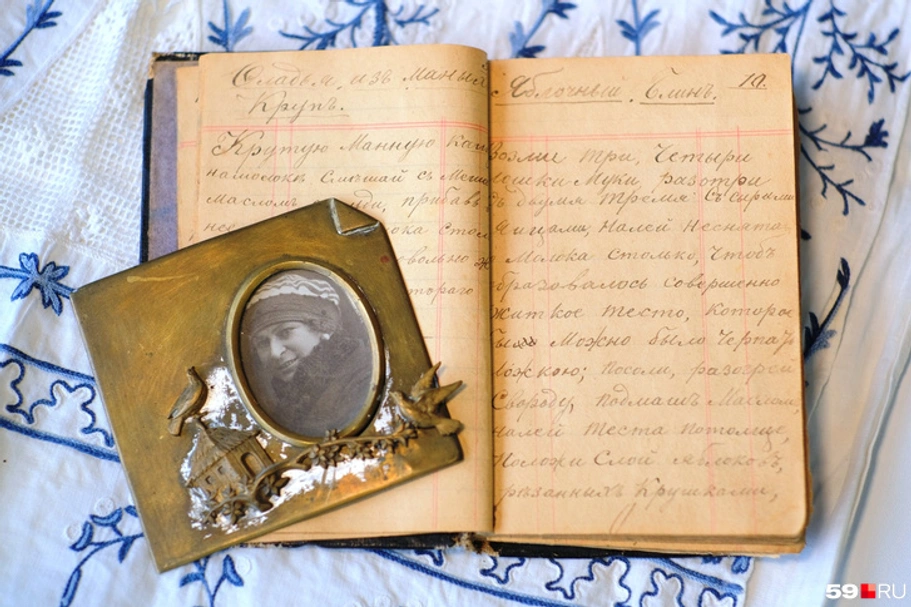 Оладьи изъ Манныхъ
Крупъ.
Крутую Манную Каш
на молокѣ Смѣшай съ
масломъ прибавь
не ока стол
овольно
отораго
Яблочный Блинъ. 19.
Возми три, Четыри
ложки Муки, разотри
съ двумя Тремя Сырыми
Яицами, Налей Неснята
Молока столько, Чтобъ
образовалось совершенно
житкое тесто, Которое
Можно было Черпат
ложкою; Посоли, разогрей
Сковроду, подмашъ Масломъ,
налей теста потолще,
Положи Слой яблоковъ,
рѣзанныхъ Кружками,
59.RU